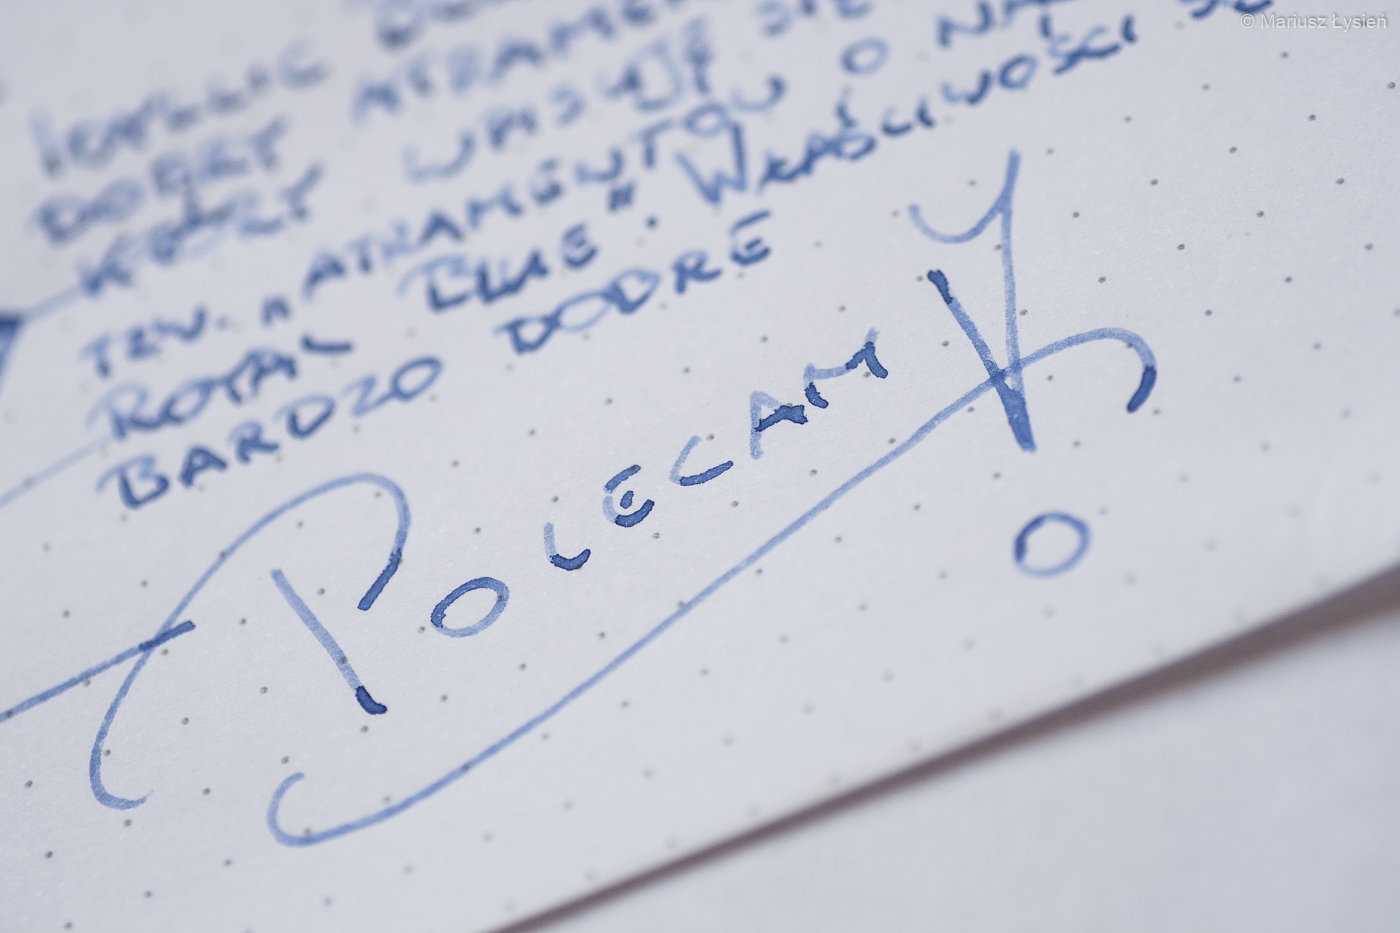 © Mariusz Łysień
DOBRY ATRAMEN
KTÓRY WPISUJE SIĘ
TZW. "ATRAMENTÓW O
ROYAL BLUE". WŁAŚCIWOŚCI
BARDZO DOBRE
POLECAM!